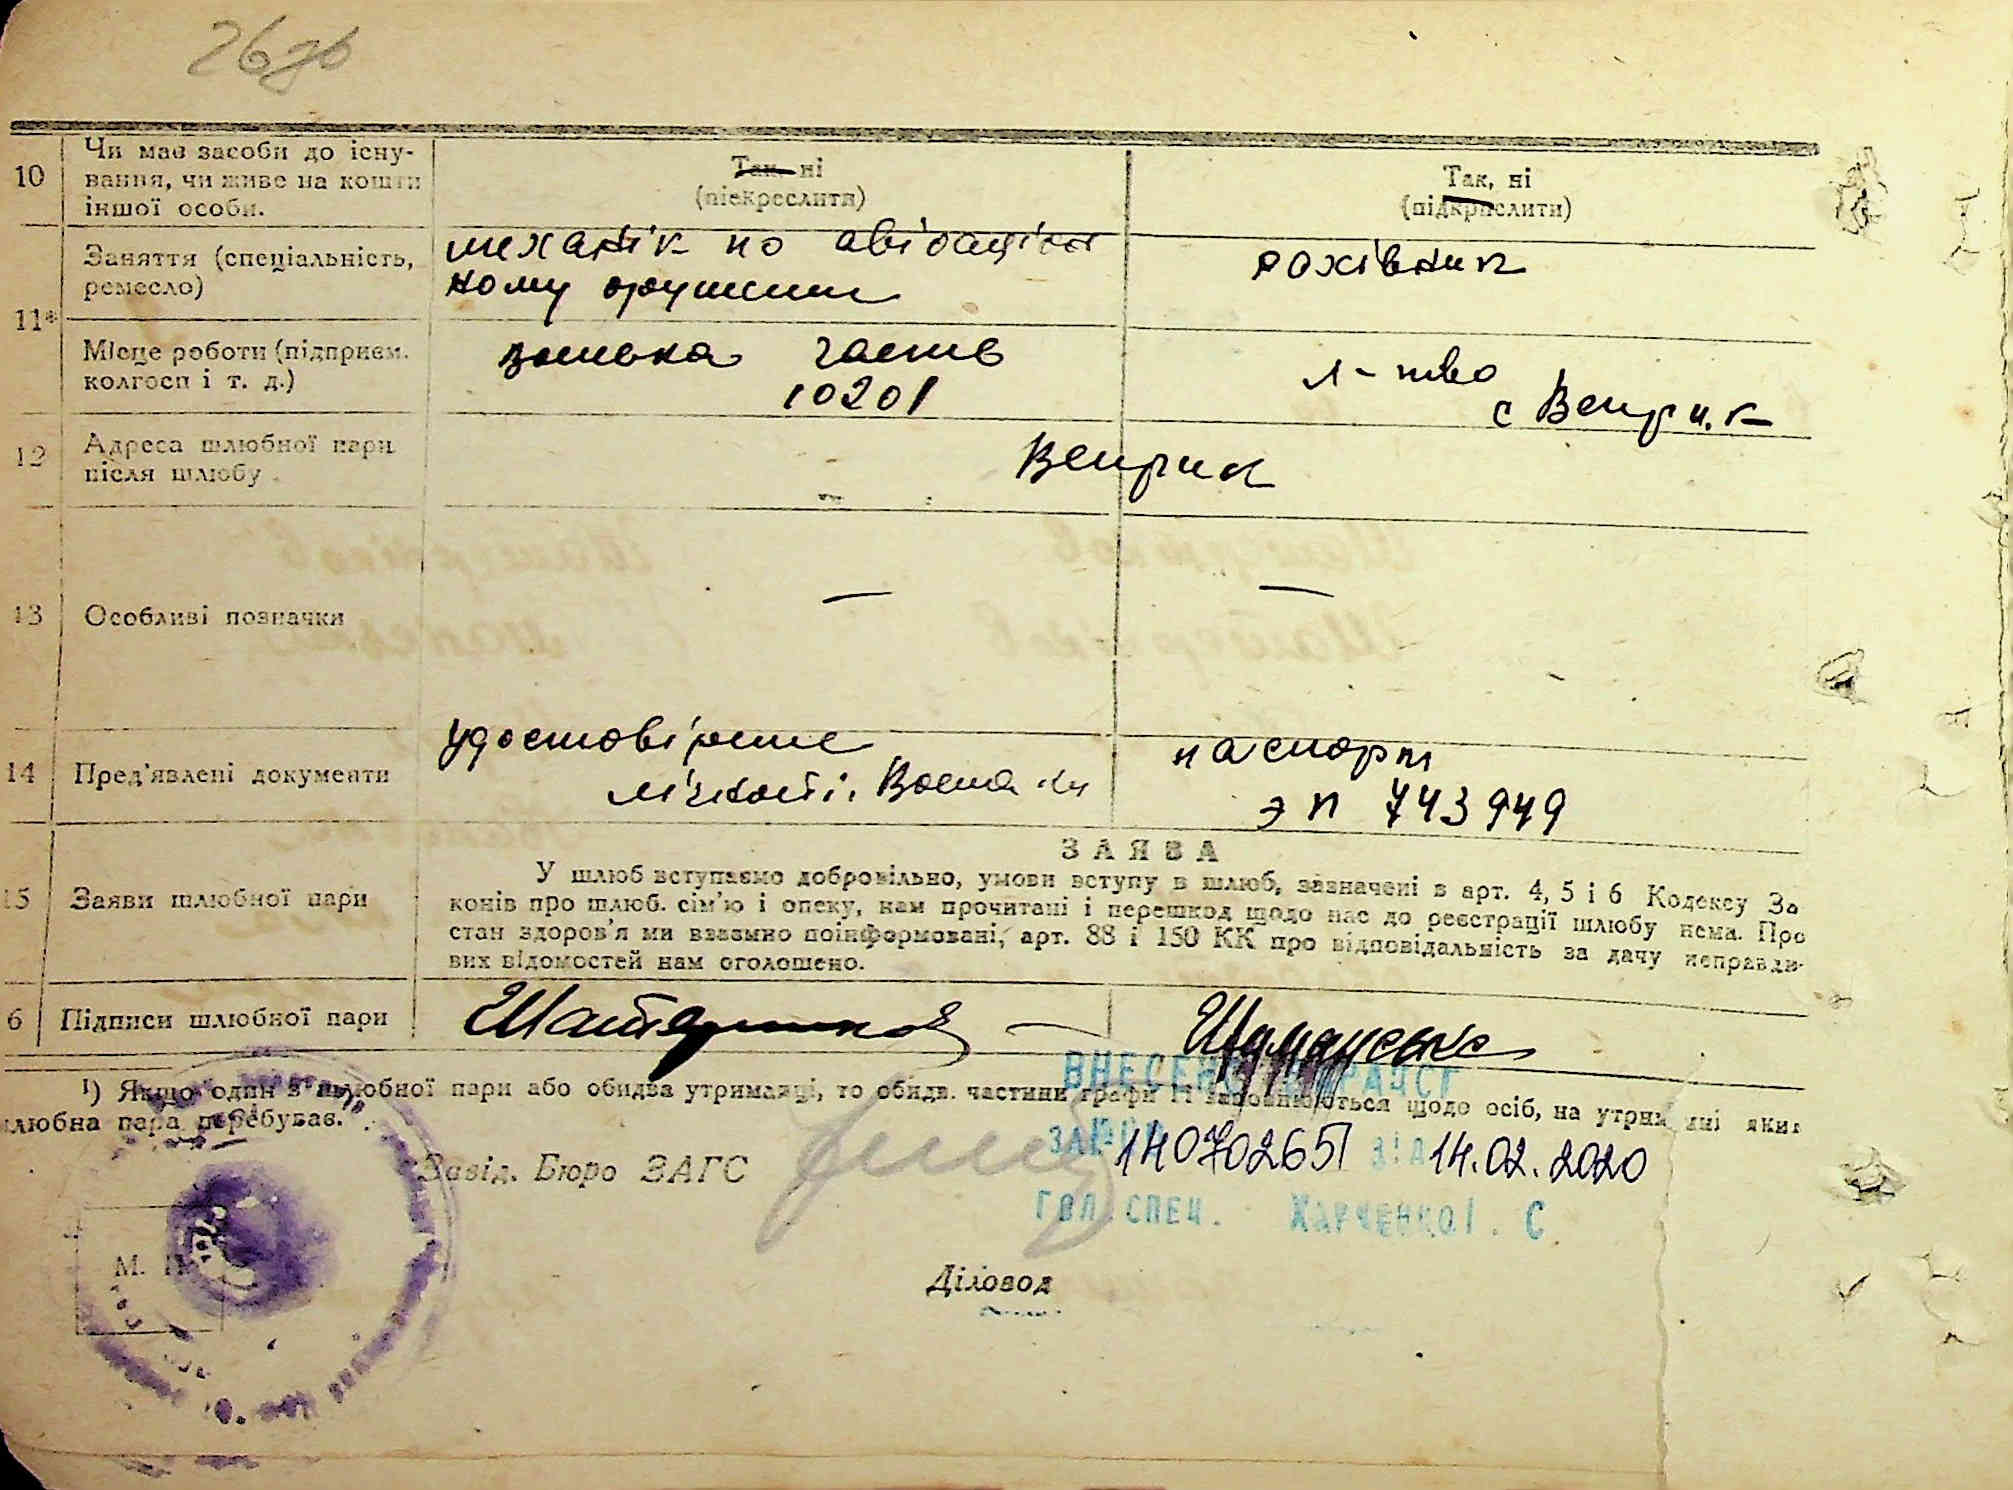 26
10
Чи має засоби до існу-
вання, чи живе на кошти
іншої особи.
Так, ні
(підкреслити)
Так, ні
(підкреслити)
11*
Заняття (спеціальність,
ремесло)
механік по авіаційн
ному
рахівник
Місце роботи (підприєм.
колгосп і т. д.)
часть
10201
с Веприк
12
Адреса шлюбної пари
після шлюбу
Веприк
13
Особливі позначки
—
—
14
Пред'явлені документи
удостовірение
лічності.
паспорт
ЭП 743949
15
Заяви шлюбної пари
ЗАЯВА
У шлюб вступаємо добровільно, умови вступу в шлюб, зазначені в арт. 4, 5 і 6 Кодексу За
конів про шлюб. сім'ю і опеку, нам прочитані і перешкод щодо нас до реєстрації шлюбу нема. Про
стан здоров'я ми взаємно поінформовані, арт. 88 і 150 КК про відповідальність за дачу неправди-
вих відомостей нам оголошено.
6
Підписи шлюбної пари
Шуманська
¹) Якщо один з шлюбної пари або обидва утриманці, то обидв. частини графи 11 заповнюються щодо осіб, на утрим нні яких
шлюбна пара перебуває.
ВНЕСЕНО ДРАЦСГ
140702651 від 14.02.2020
ГОЛ. СПЕЦ. ХАРЧЕНКО І. С
Завід. Бюро ЗАГС
М. П.
Діловод